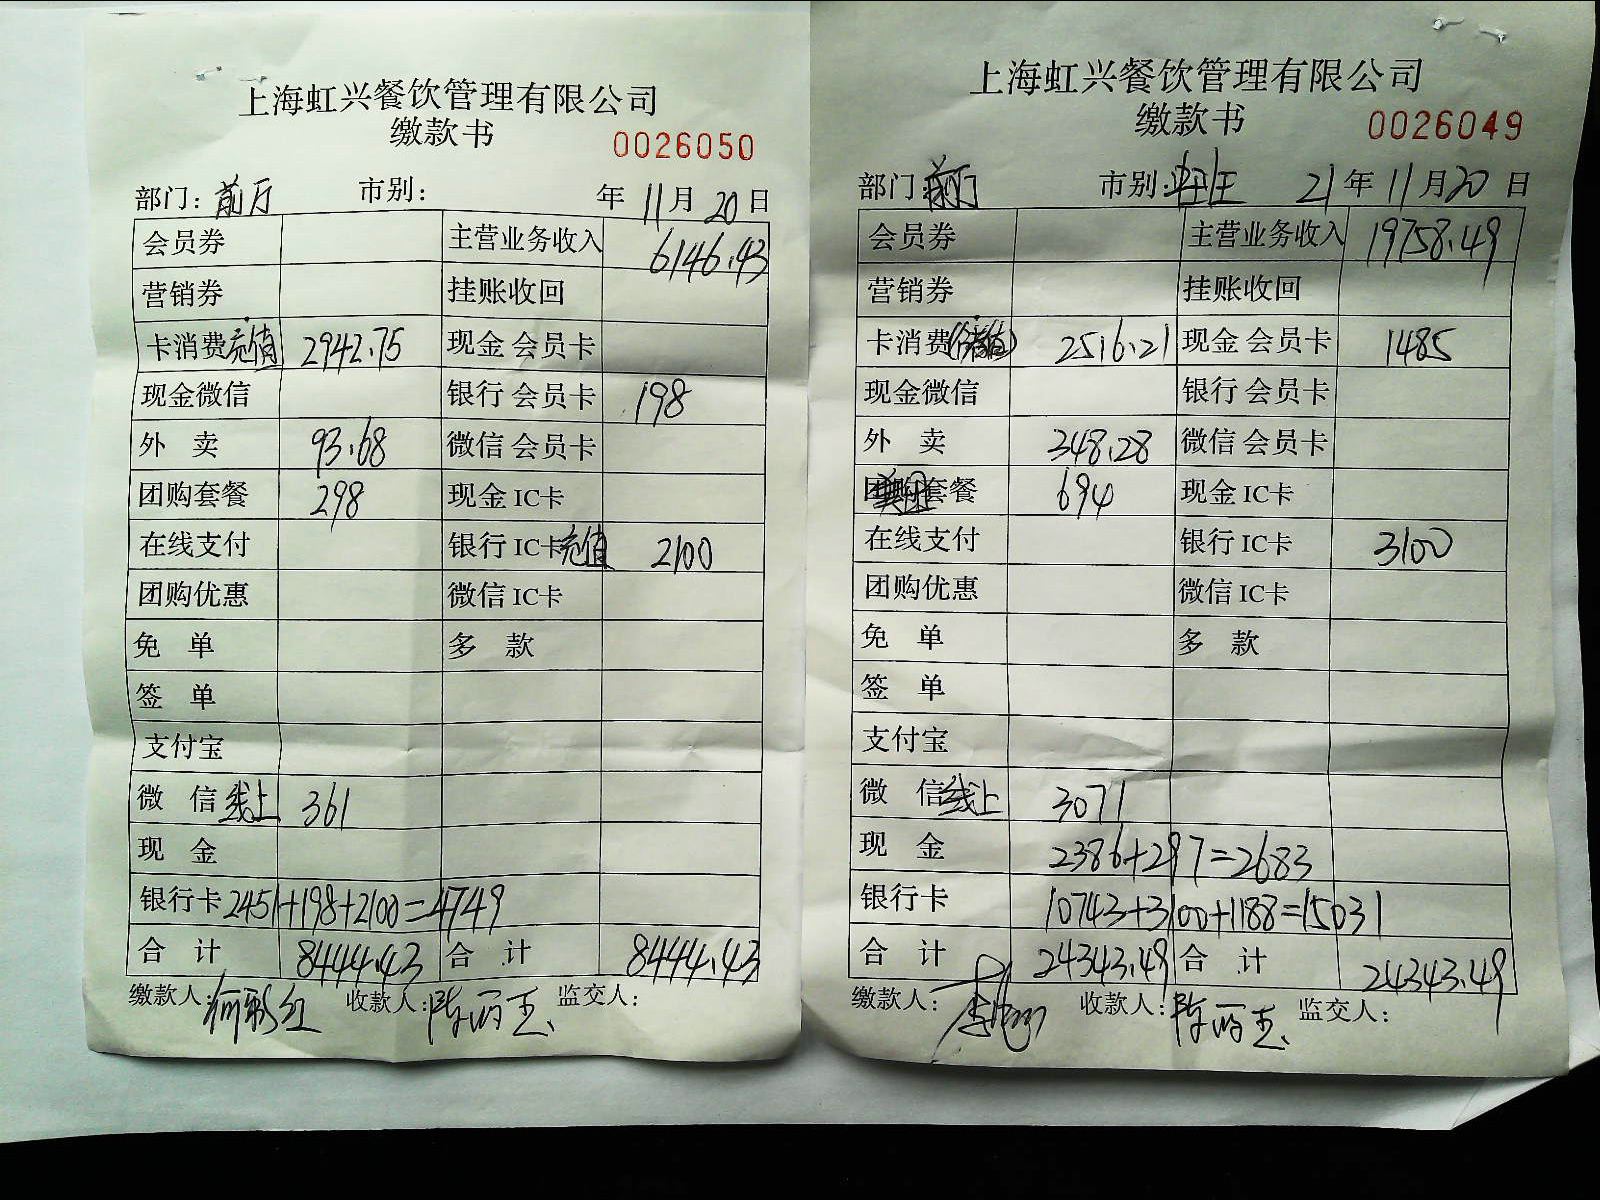 上海虹兴餐饮管理有限公司
缴款书
0026050
部门：前厅 市别： 年 11月 20日
会员券 主营业务收入 6146.43
营销券 挂账收回
卡消费充值 2942.75 现金 会员卡
现金微信 银行 会员卡 198
外 卖 93.68 微信 会员卡
团购套餐 298 现金 IC卡
在线支付 银行 IC卡充值 2100
团购优惠 微信 IC卡
免 单 多 款
签 单
支付宝
微 信线上 361
现 金
银行卡 2451+198+2100=4749
合 计 8444.43 合 计 8444.43
缴款人： 收款人： 监交人：
上海虹兴餐饮管理有限公司
缴款书
0026049
部门： 市别： 21年 11月20日
会员券 主营业务收入 19758.49
营销券 挂账收回
卡消费(储值) 2516.21 现金 会员卡 1485
现金微信 银行 会员卡
外 卖 348.28 微信 会员卡
团购套餐 694 现金 IC卡
在线支付 银行 IC卡 3100
团购优惠 微信 IC卡
免 单 多 款
签 单
支付宝
微 信线上 3071
现 金 2386+297=2683
银行卡 10743+3100+1188=15031
合 计 24343.49 合 计 24343.49
缴款人： 收款人： 监交人：